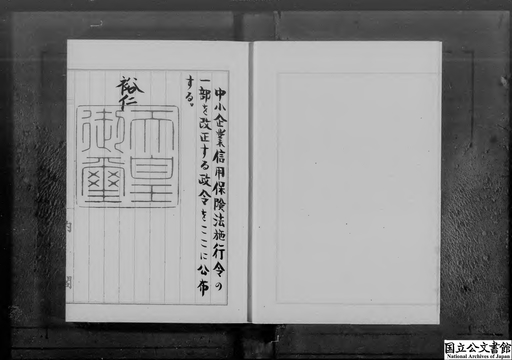 中小企業信用保険法施行令の
一部を改正する政令をここに公布
する。
裕仁
天皇
御璽
国立公文書館
National Archives of Japan